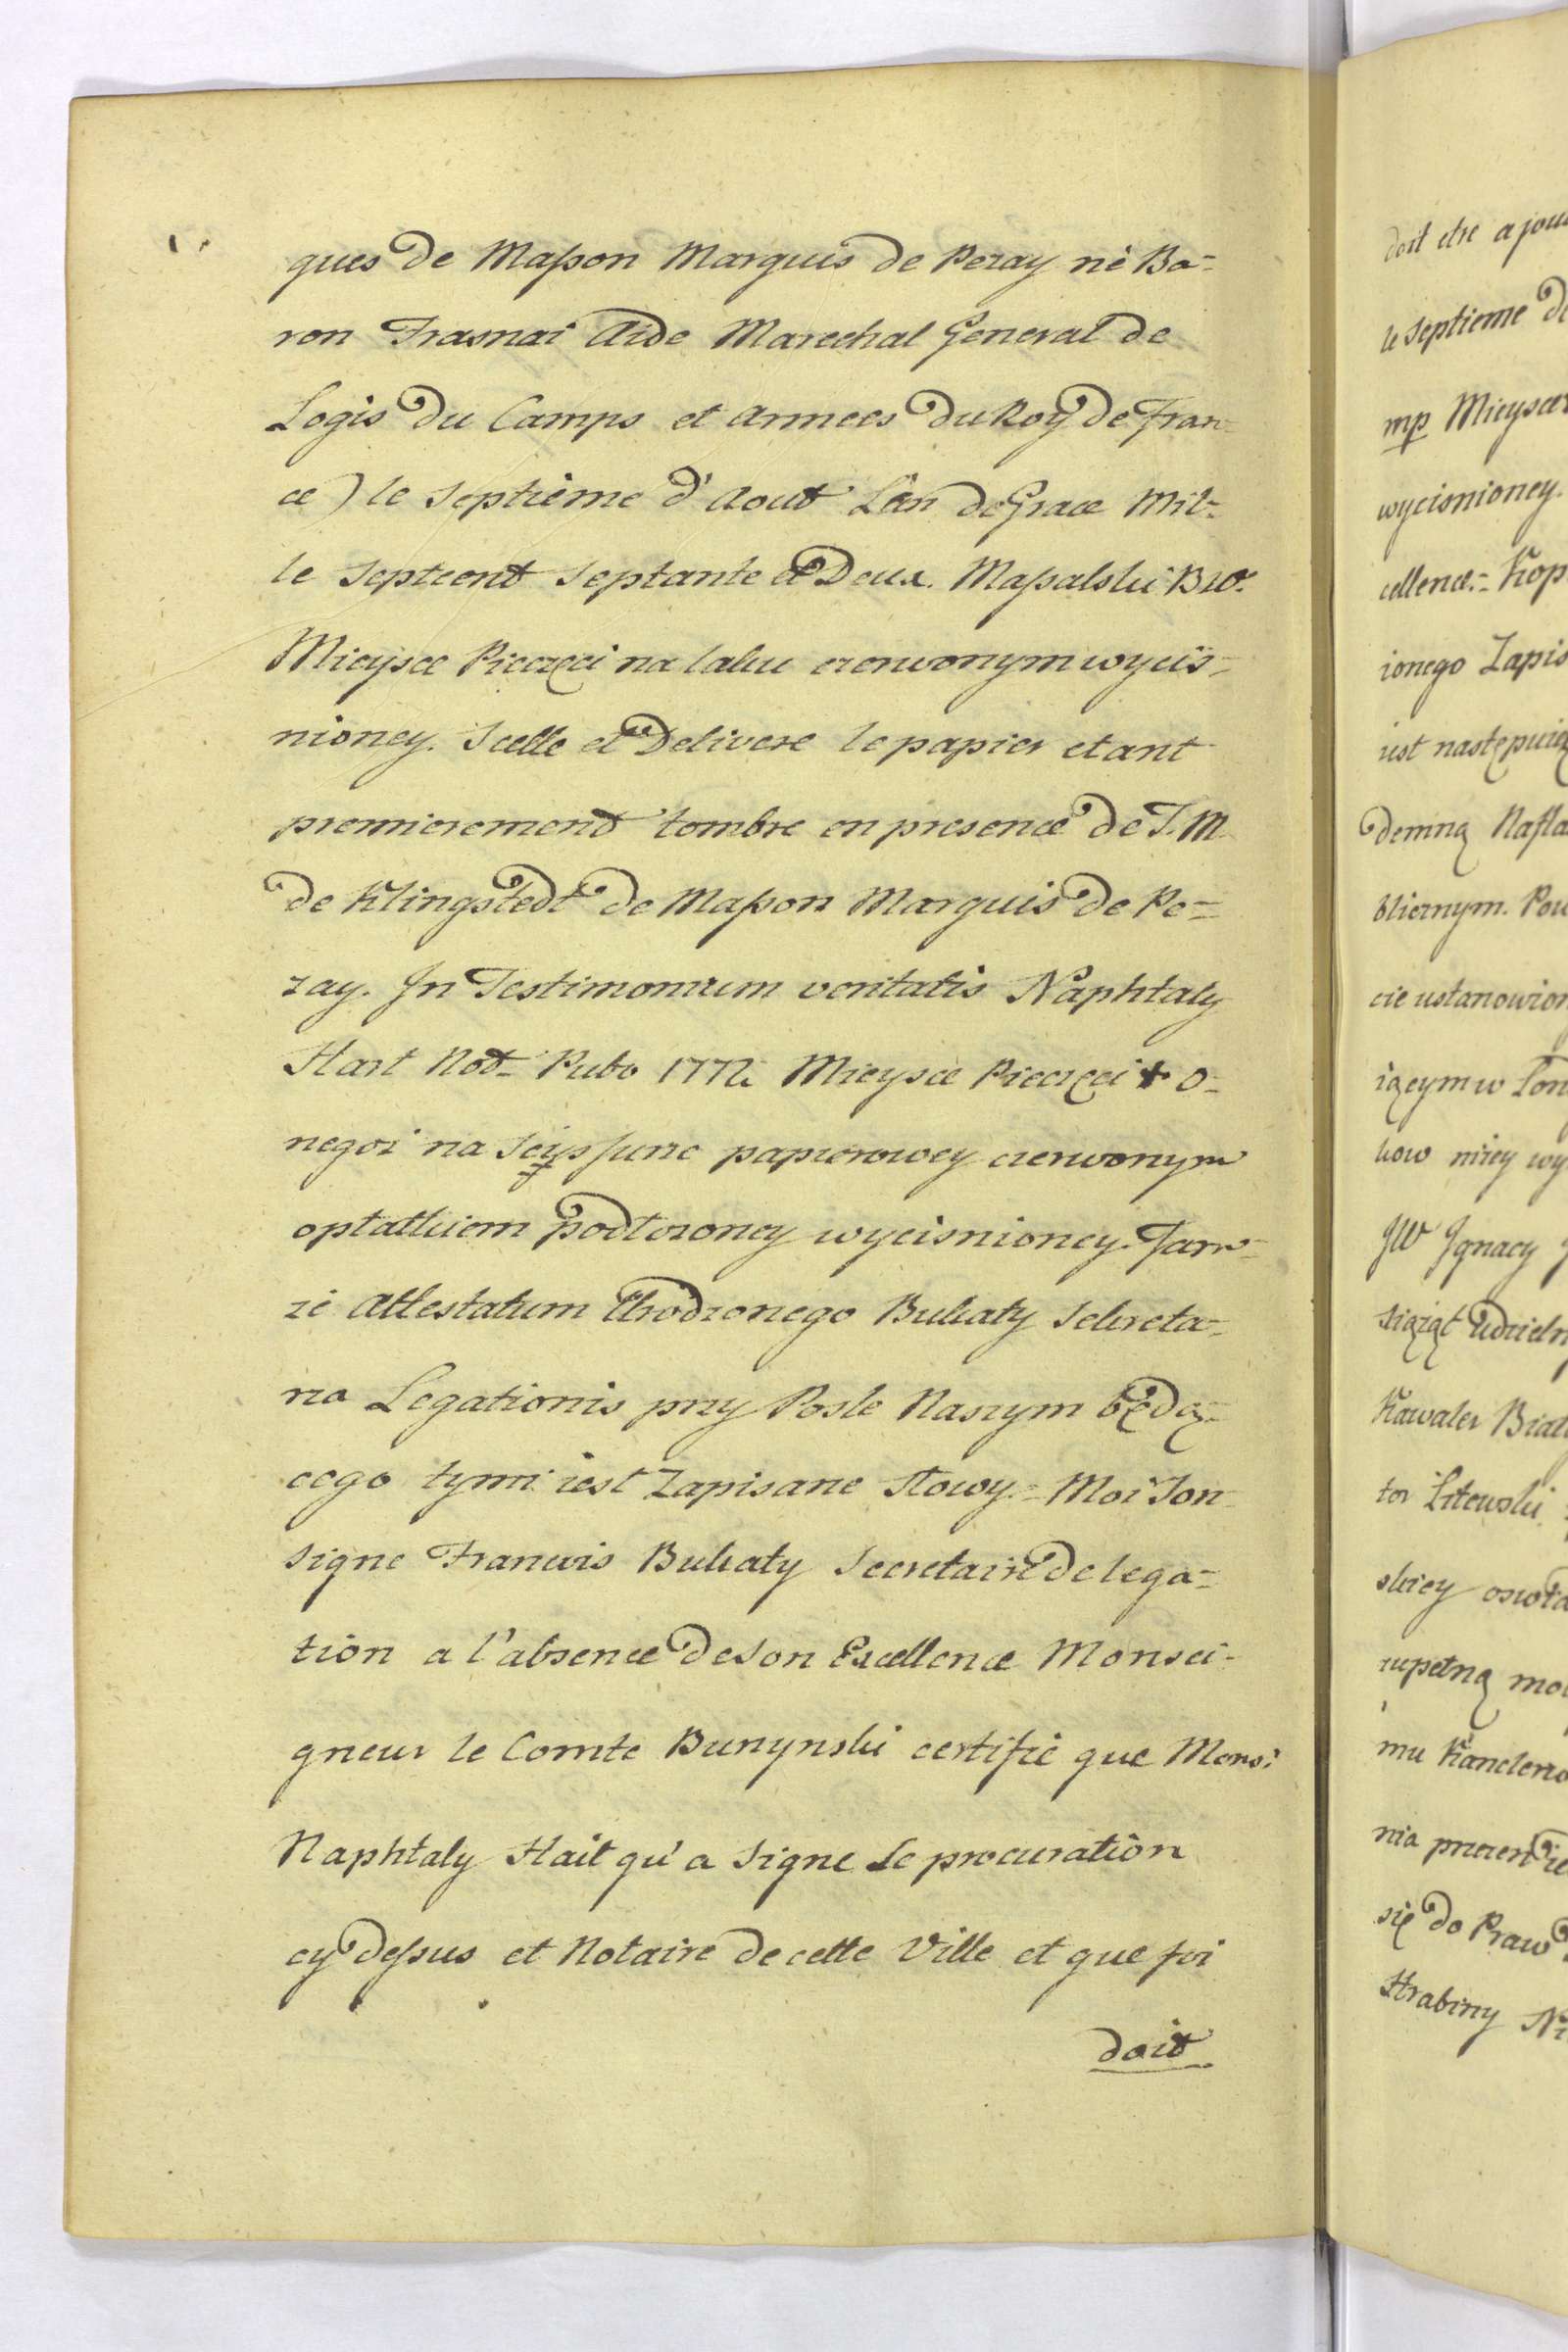 ques de Maſson Marquis de Pezay nè Ba-
ron Frasnai Aide Marechal General de
Logis du Camps et Armees du Roy de Fran-
ce) le septieme d'Aout L'an de Grace Mil-
le septcent septante et Deux. Maſsalski B W.
Mieysce Pieczęci na laku czerwonym wyciś-
nioney. Scelle et Delivere le papier etant
premierement tembre en presence de J. M
de Klingstedt de Maſson Marquis de Pe-
zay. In Testimonium veritatis Naphtaly
Hart Not- Pubo 1772. Mieysce Pieczęci + o-
negoż na papierowey czerwonym
opłatkiem podłożoney wycisnioney. Tam-
że Attestatum Urodzonego Bukaty Sekreta-
rza Legationis przy Posle Naszym będą-
cego tymi iest Zapisane słowy = Moi Son-
signe Francois Bukaty Secretaire de lega-
tion a l'absence de son Excellence Monsei-
gneur le Comte Burzynski certifie que Mons:
Naphtaly Hait qu'a signe le procuration
cy deſsus et Notaire de cette Ville et que foi
doit
doit etre ajou
le septieme de
mp Mieysce
wycisnioney.
cellence.- Kop
ionego Zapis
iest następuią
demną Nafta
blicznym. Pow
cie ustanowion
iącym w Lon
kow niżey wy
JW Ignacy
Xiążąt Udzieln
Kawaler Biał
tor Litewski
skiey osoba
zupełną moc
mu Kanclerzo
nia przezen ie
się do Praw
Hrabiny Ni